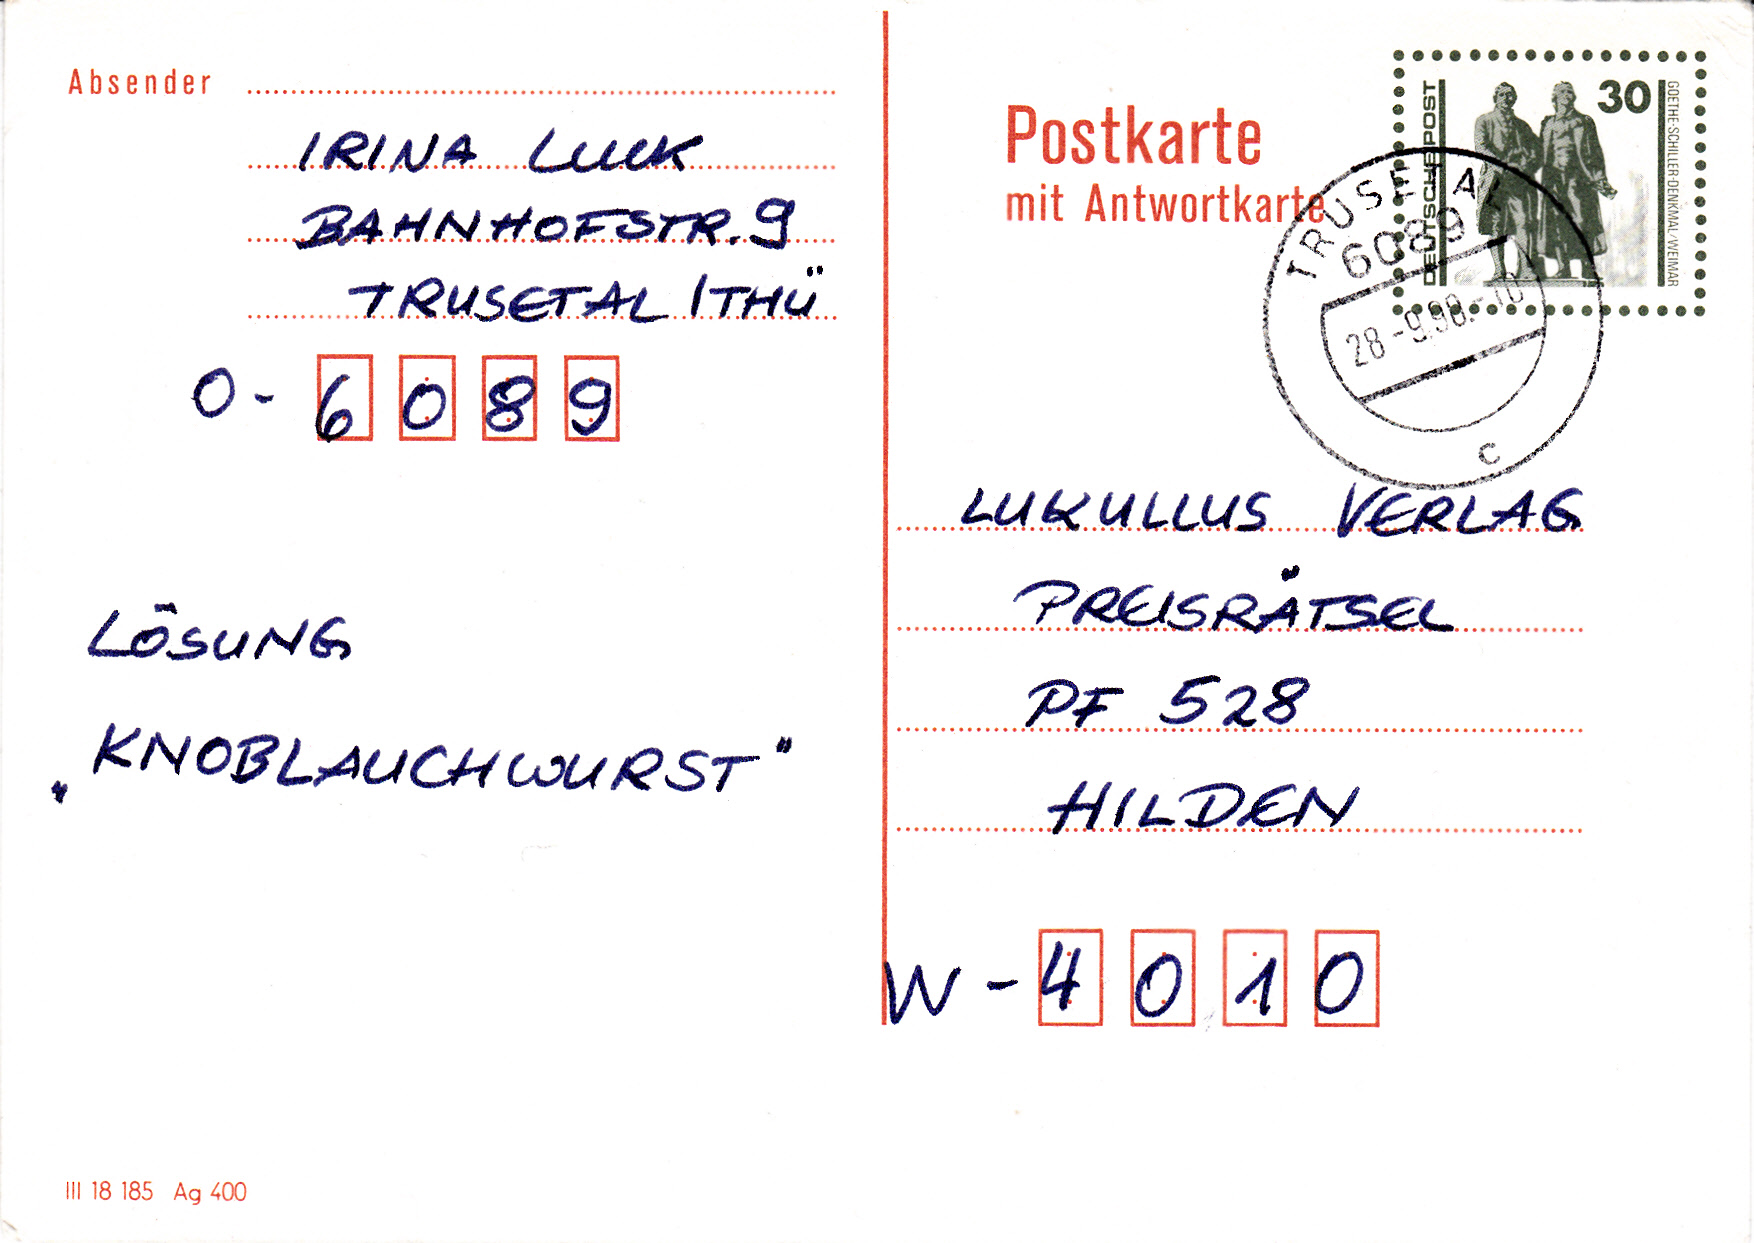 Absender
IRINA LUCK
BAHNHOFSTR. 9
TRUSETAL / THÜ
O - 6089
LÖSUNG
„KNOBLAUCHWURST"
III 18 185 Ag 400
Postkarte
mit Antwortkarte
DEUTSCHE POST
30
GOETHE-SCHILLER-DENKMAL/WEIMAR
TRUSETAL
6089
28-9.90.-10
c
LUKULLUS VERLAG
PREISRÄTSEL
PF 528
HILDEN
W - 4010